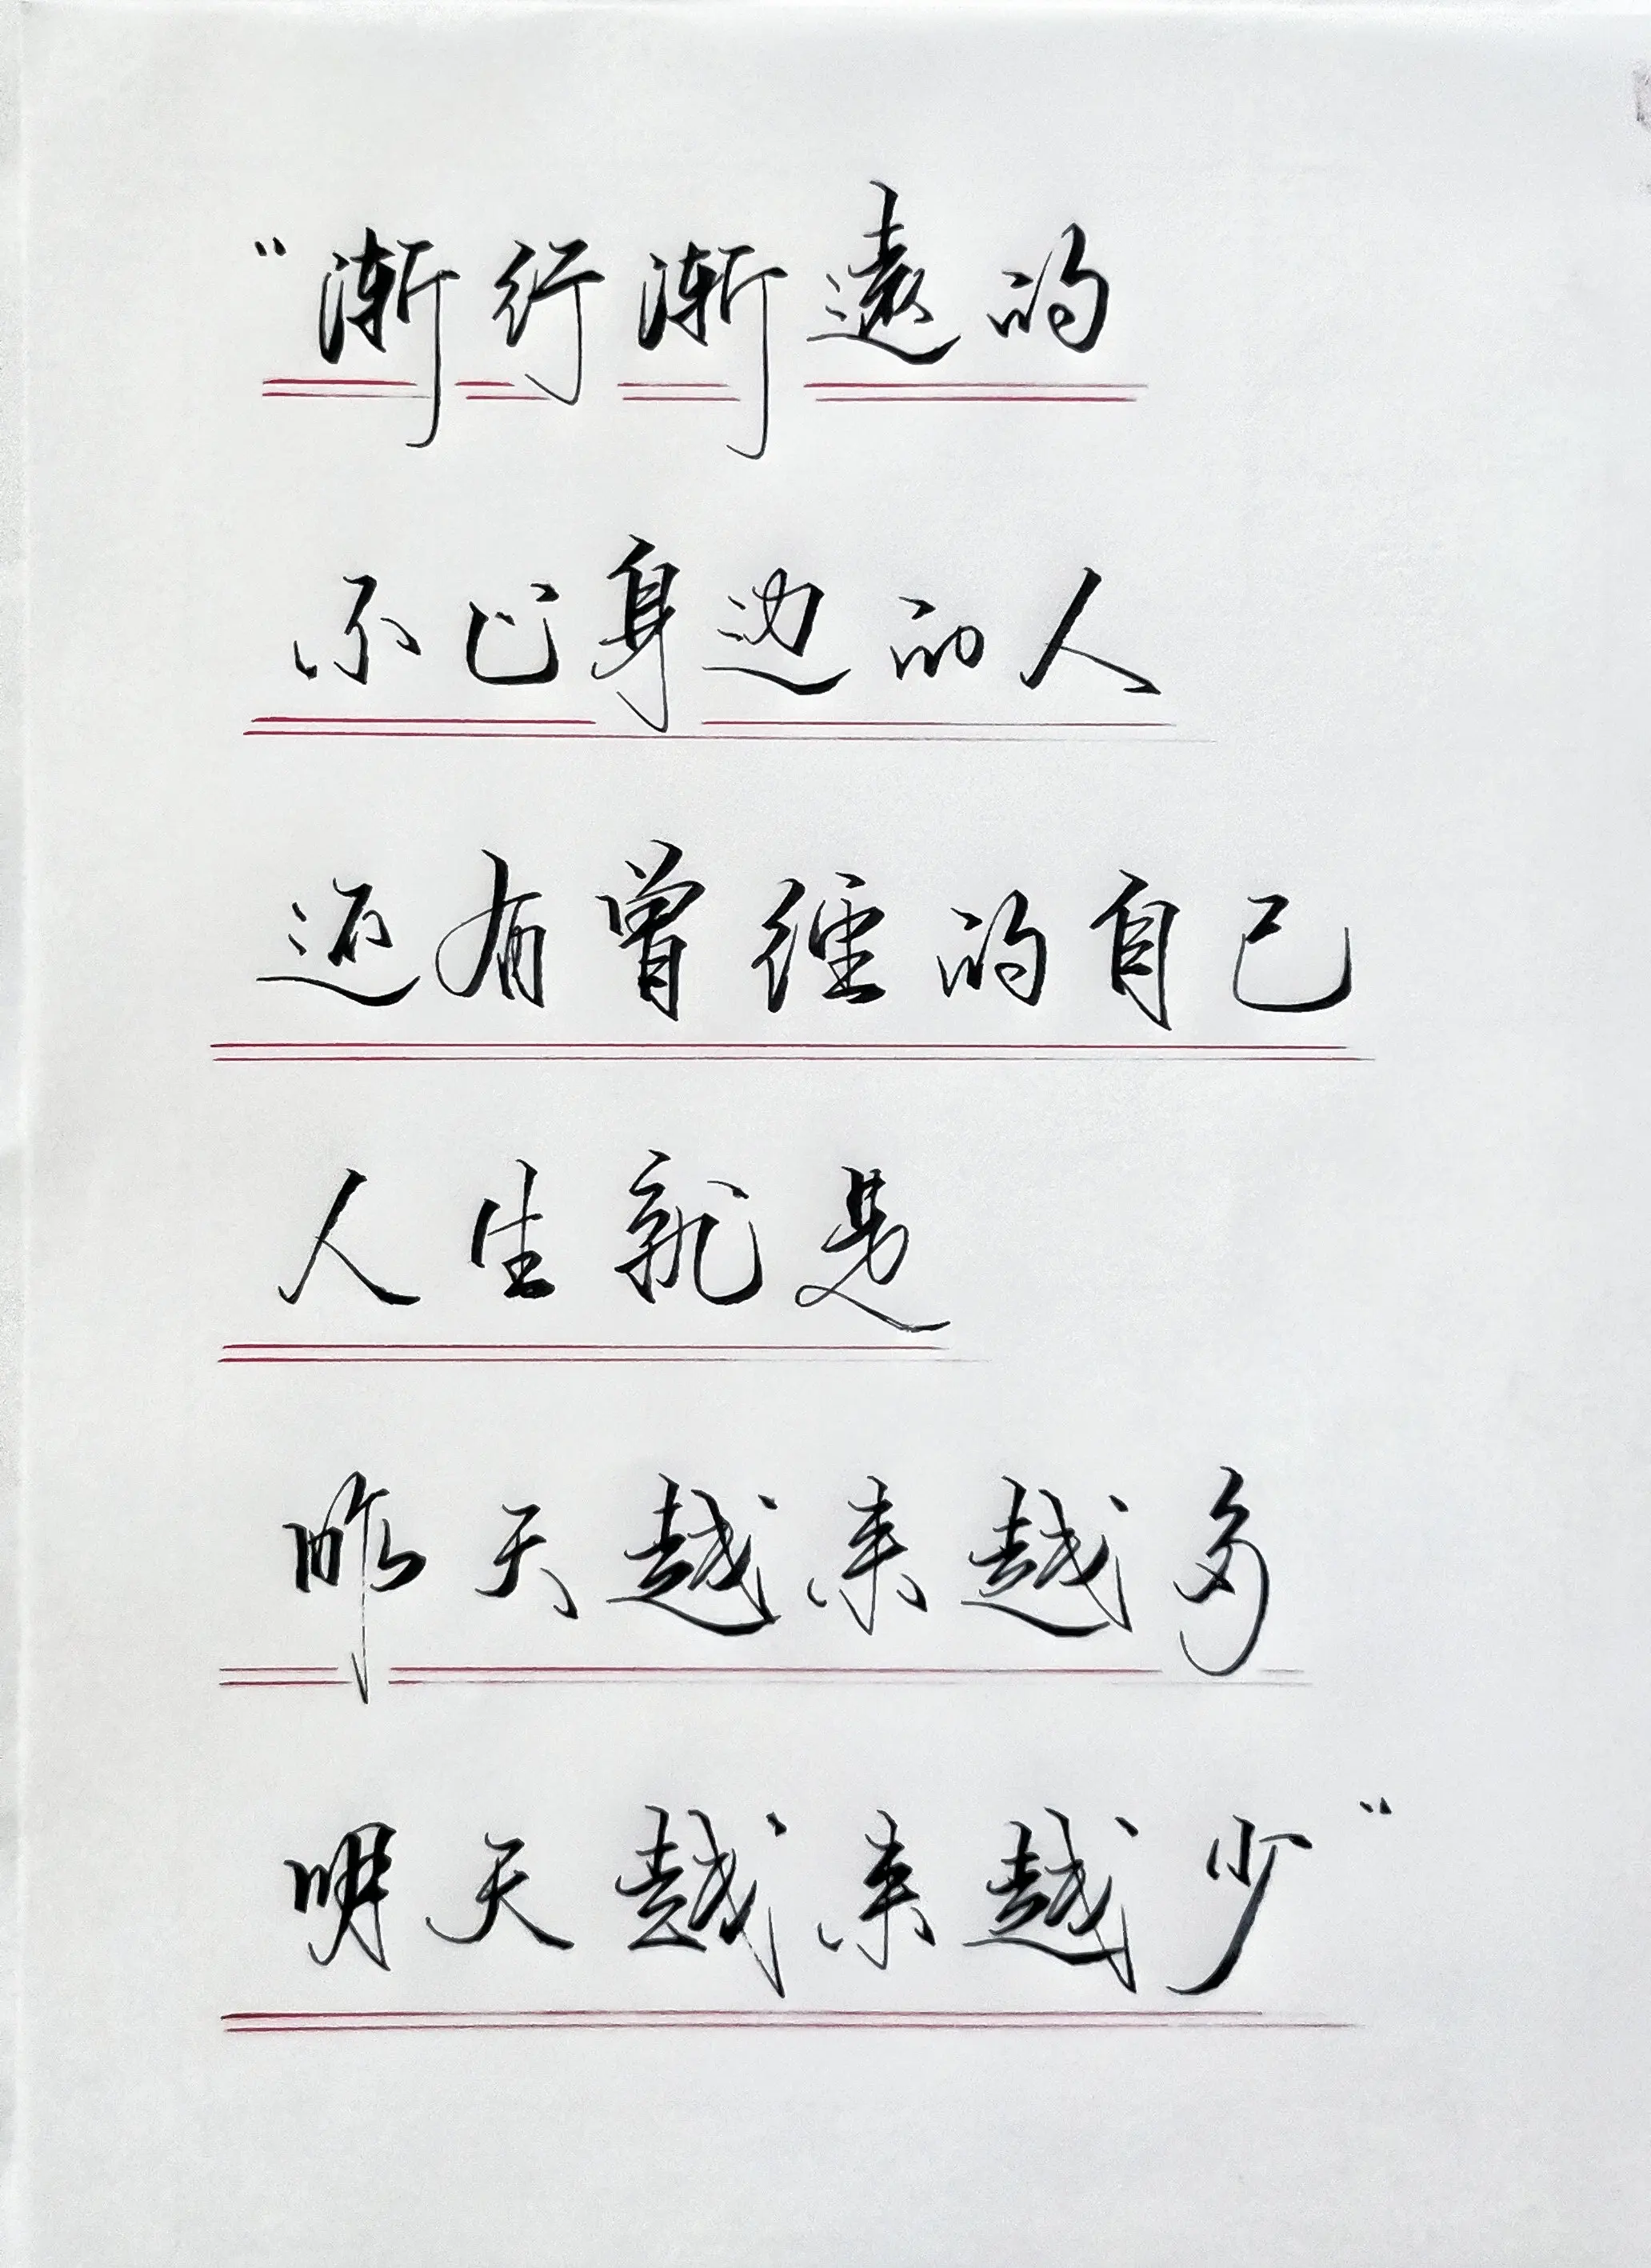 “渐行渐遠的
不止身边的人
还有曾经的自己
人生就是
昨天越来越多
明天越来越少”